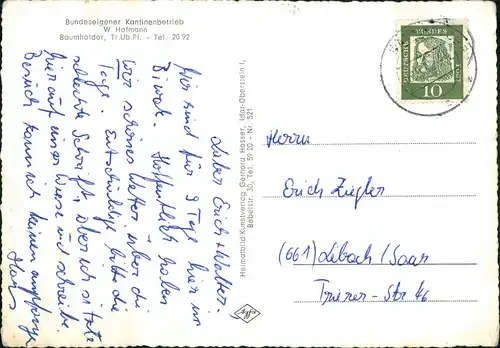 Bundeseigener Kantinenbetrieb
W. Hofmann
Baumholder, Tr.Üb.Pl. - Tel. 20 92
Lieber Erich + Walter.
Wir sind für 9 Tage hier im
Biwak. Hoffentlich haben
wir schönes Wetter über die
Tage. Entschuldige bitte die
schlechte Schrift, aber ich sitze
hier auf einer Wiese und schreibe.
Besuch kann ich keinen empfangen
Heimatbild-Kunstverlag Gerhard Hosser, Idar-Oberstein 1,
Bebelstr. 30, Tel. 59 20 - Nr. 521
DEUTSCHE
BUNDESPOST
10
Herrn
Erich Ziegler
(661) Lebach/Saar
Trierer-Str 46